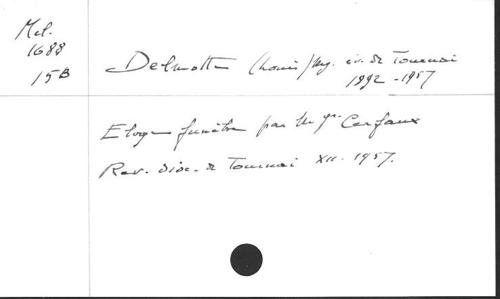 Mel.
1688
15B
Delmotte (Louis) Mgr. év. de Tournai
1892-1957
Eloge funèbre par Mgr. Cerfaux
Rev. dioc. de Tournai XII. 1957.